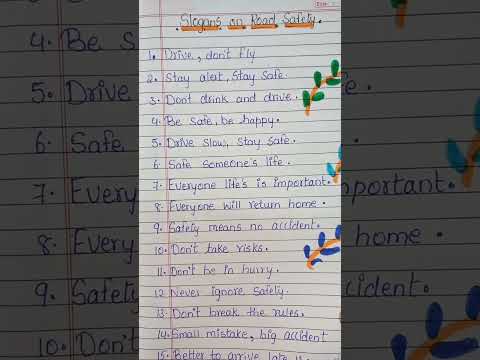 Slogans on Road Safety.
1. Drive, don't fly
2. Stay alert, Stay safe.
3. Dont drink and drive.
4. Be safe, be happy.
5. Drive slow, stay safe.
6. Safe someone's life.
7. Everyone life's is important.
8. Everyone will return home.
9. Safety means no accident.
10. Don't take risks.
11. Don't be in hurry.
12. Never ignore safety.
13. Don't break the rules.
14. Small mistake, big accident
15. Better to arrive late
4. Be s
5. Drive
6. Safe
7. Every
8. Every
9. Safety
10. Don't
portant.
home.
cident.